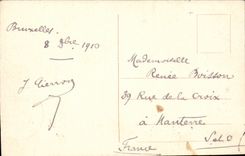 Bruxelles
8 9bre 1910
Mademoiselle
Renée Boisson
39 Rue de la Croix
à Nanterre
S et O
France